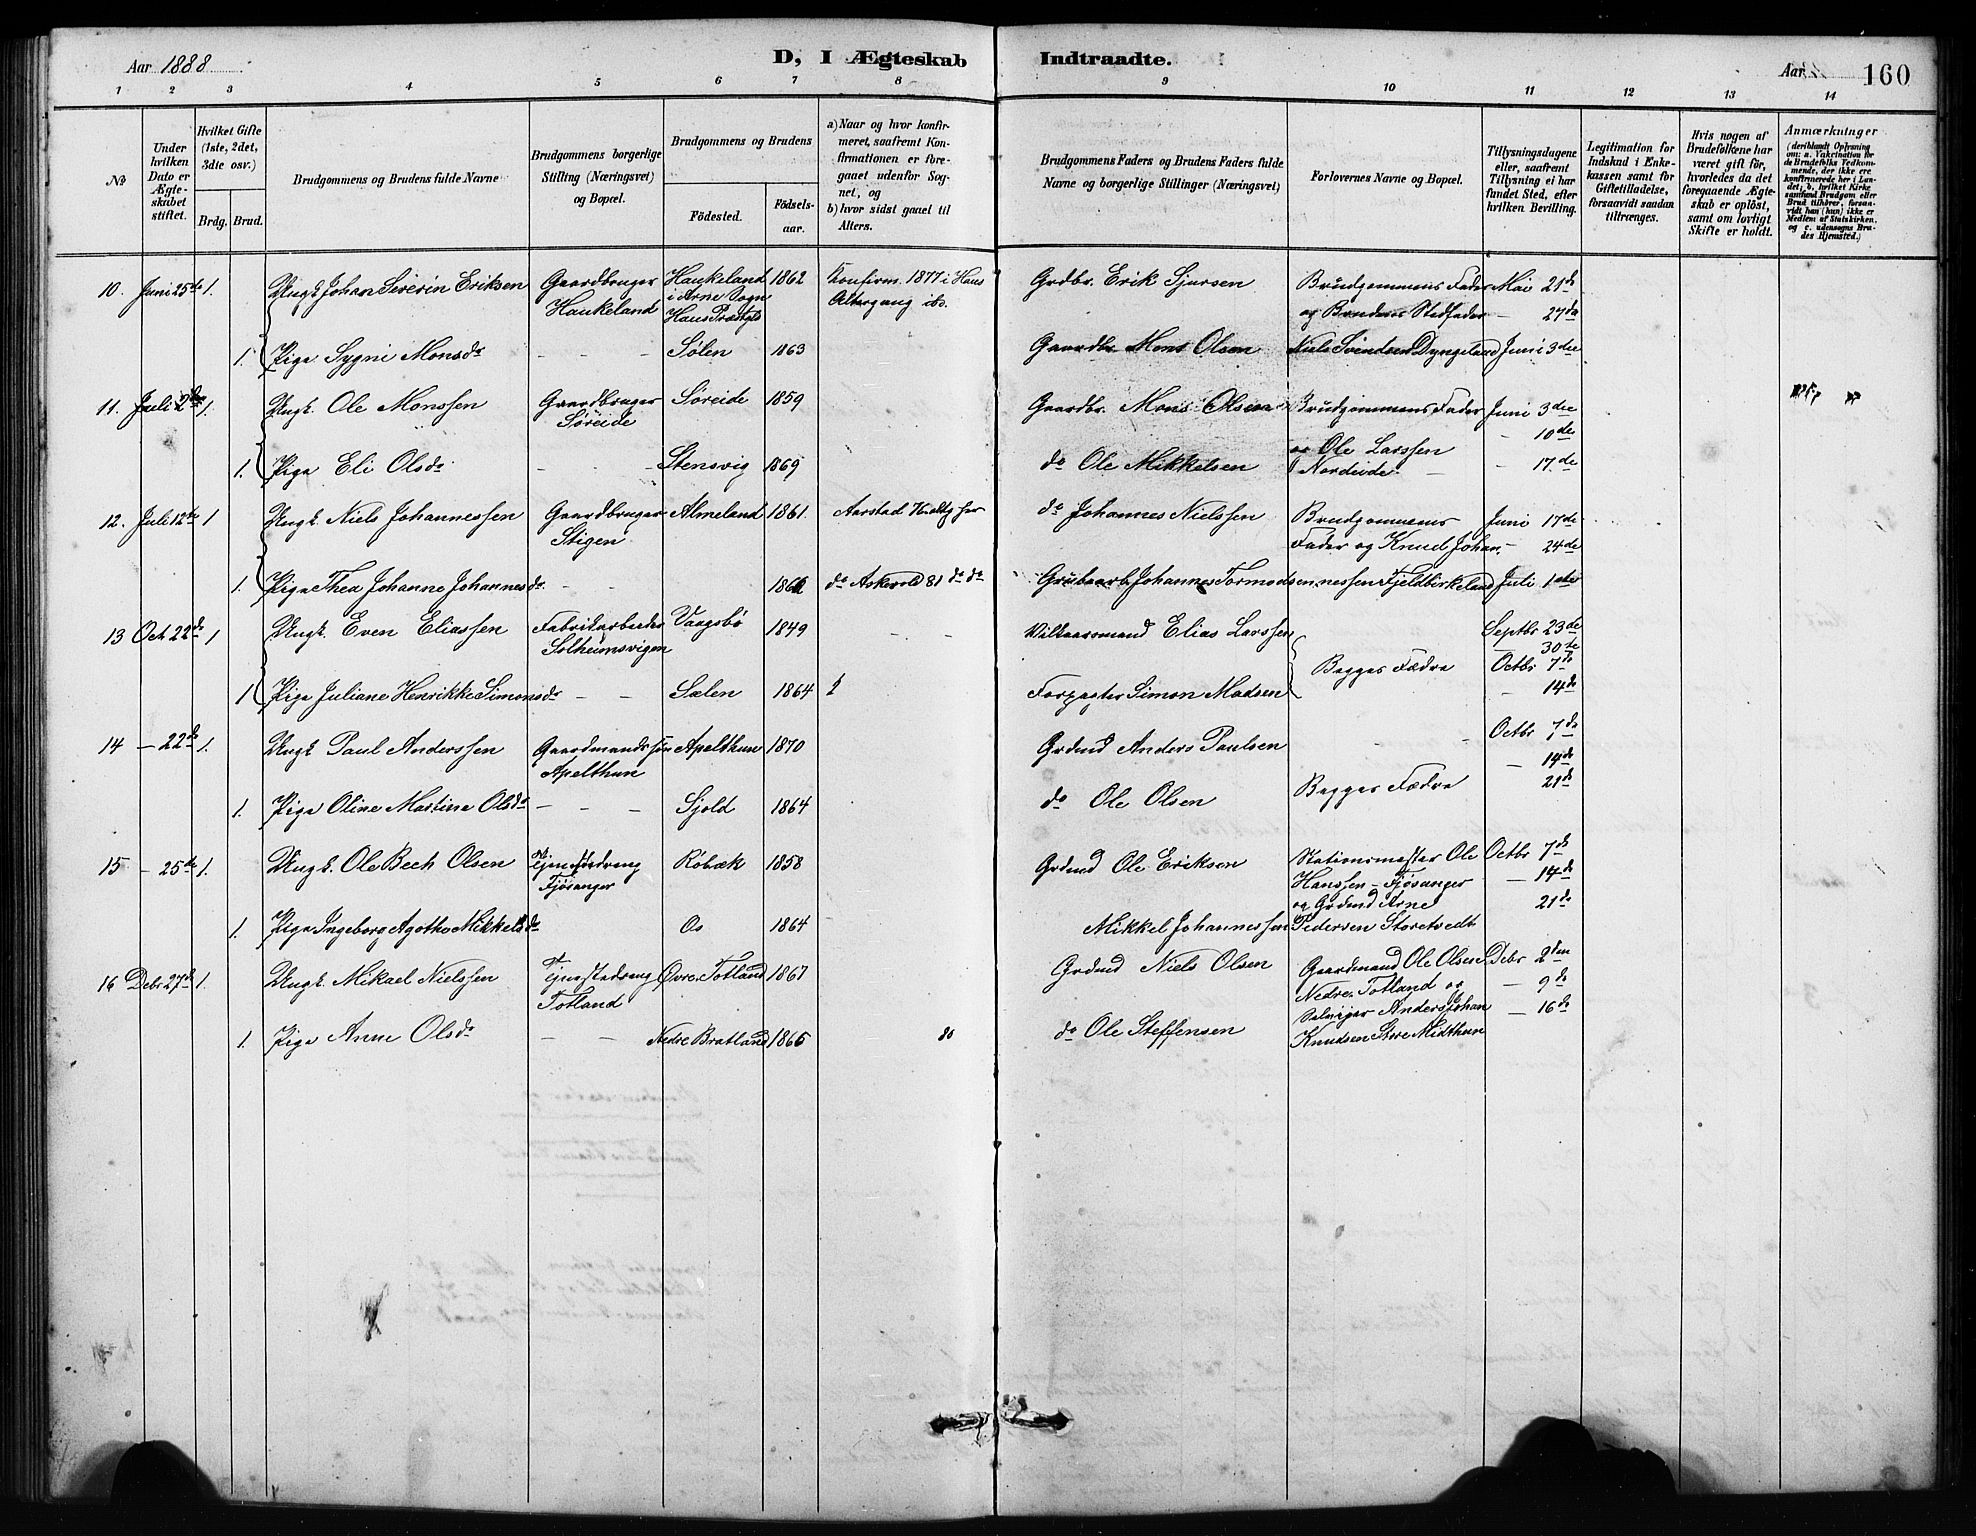 Aar 1888
D, I Ægteskab Indtraadte.
Aar 160
1 2 3 4 5 6 7 8 9 10 11 12 13 14
No
Under hvilken Dato er Ægteskabet stiftet.
Hvilket Gifte (1ste, 2det, 3die osv.)
Brdg. Brud.
Brudgommens og Brudens fulde Navne
Brudgommens borgerlige Stilling (Næringsvei) og Bopæl.
Brudgommens og Brudens
Födested.
Födselsaar.
a) Naar og hvor konfirmeret, saafremt Konfirmationen er foregaaet udenfor Sognet, og
b) hvor sidst gaaet til Alters.
Brudgommens Faders og Brudens Faders fulde Navne og borgerlige Stillinger (Næringsvei)
Forlovernes Navne og Bopæl.
Tillysningsdagene eller, saafremt Tillysning ei har fundet Sted, efter hvilken Bevilling.
Legitimation for Indskud i Enkekassen samt for Giftetilladelse, forsaavidt saadan tiltrænges.
Hvis nogen af Brudefolkene har været gift för, hvorledes da det foregaaende Ægteskab er oplöst, samt om lovligt Skifte er holdt.
Anmærkninger
(deriblandt Oplysning om: a. Vakcination for de Brudefolks Vedkommende, der ikke ere konfirmerede her i Landet; b. hvilket Kirkesamfund Brudgom eller Brud tilhörer, forsaavidt han (hun) ikke er Medlem af Statskirken, og c. udensogns Brudes Hjemsted.)
10. Juni 25de 1. Ungk. Johan Severin Eriksen Gaardbruger Haukeland 1862 Konfirm. 1877 i Haus Grdbr. Erik Sjursen Brudgommens Fader Mai 21d
Haukeland i Arne Sogn Haus Præstgj. Altergang ibs. og Brudens Stedfader — 27de
1. Pige Sygni Monsdr — — Sølen 1863 Gaardbr. Mons Olsen Niels Svendsen Dyngeland Juni 3die
11. Juli 2den 1. Ungk. Ole Monssen Gaardbruger Søreide 1859 Gaardbr. Mons Olsen Brudgommens Fader Juni 3die
Søreide og Ole Larssen — 10de
1. Pige Eli Olsdr — — Stensvig 1869 do Ole Mikkelsen Nordeide — 17de
12. Juli 12te 1 Ungk. Niels Johannessen Gaardbruger Almeland 1861. Aarstad K. altg her do Johannes Nielssen Brudgommens Juni 17de
Stigen Fader og Knud Johan- — 24de
1. Pige Thea Johanne Johannesdr — — do Askvold 81 do do Johannes Tormodsen nessen Fjeldbirkeland Juli 1ste
13 Oct 22de 1 Ungk. Even Eliassen Fabrikarbeider Vaagsbø 1849 — — Vilkaarsmand Elias Larssen Septbr 23de
Solheimsvigen 30te
Begges Fædre Octbr 7de
1 Pige Juliane Henrikke Simonsdr — — Sælen 1864 Forpagter Simon Madsen — 14de
14 — 22de 1. Ungk. Paul Anderssen Gaardmandssøn Apelthun 1870 Grdmd Anders Paulsen Octbr 7de
Apelthun — 14de
1. Pige Oline Martine Olsdr — — Sjold 1864 do Ole Olsen Begges Fædre 21de
15 — 25de 1. Ungk. Ole Bech Olsen Tjenestedreng Röbæk 1858 Grdmd Ole Eriksen Stationsmester Ole Octbr 7de
Fjösanger Hanssen — Fjösanger — 14de
og Grdmd Arne 21de
1. Pige Ingeborg Agathe Mikkelsdr Os 1864 Mikkel Johannessen Pedersen Storetvedt
16 Debr 27de 1. Ungk. Mikael Nielssen Tjenestedreng Övre Totland 1867 Grdmd Niels Olsen Gaardmand Ole Olsen Debr 2den
Totland Nedre Totland og — 9de
Selveier Anders Johan — 16de
1. Pige Anne Olsdr — — Nedre Bratland 1865 do do Ole Steffensen Knudsen Store Midthun